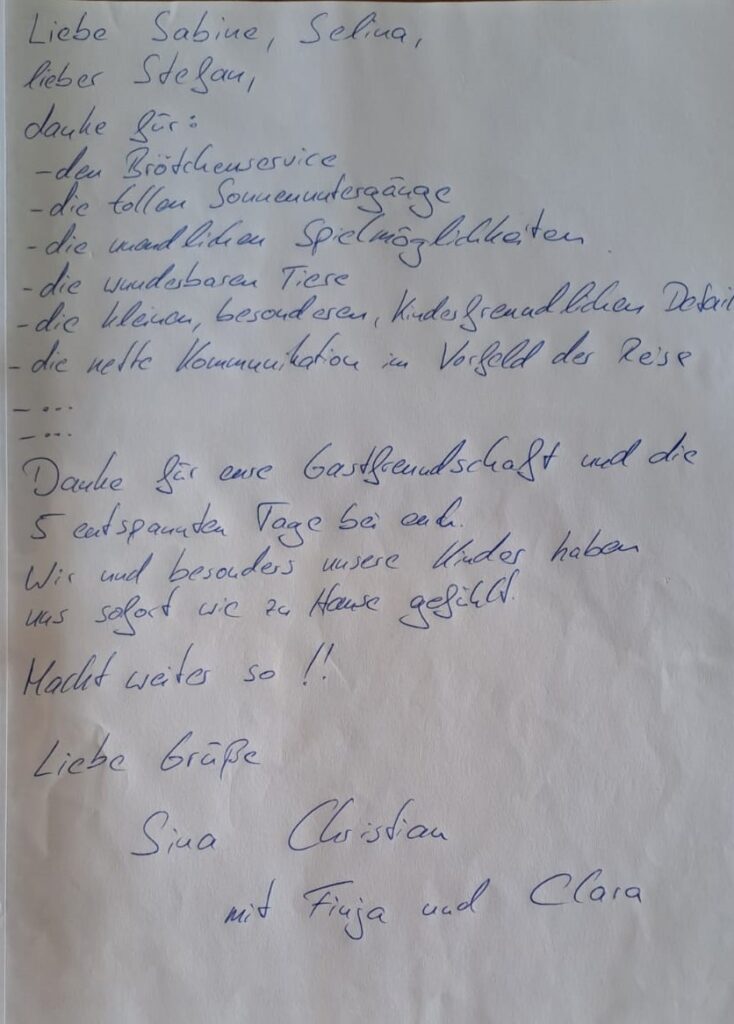 Liebe Sabine, Selina,
lieber Stefan,
danke für:
-den Brötchenservice
-die tollen Sonnenuntergänge
-die unendlichen Spielmöglichkeiten
-die wunderbaren Tiere
-die kleinen, besonderen, kinderfreundlichen Detail
-die nette Kommunikation im Vorfeld der Reise
-...
-...
Danke für eure Gastfreundschaft und die
5 entspannten Tage bei euch.
Wir und besonders unsere Kinder haben
uns sofort wie zu Hause gefühlt.
Macht weiter so !!
Liebe Grüße
Sina Christian
mit Finja und Clara